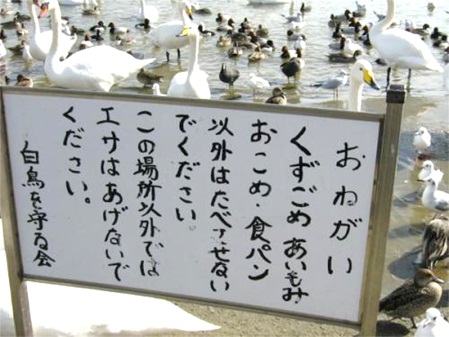 おねがい
くずごめ あいもみ・
おこめ・食パン
以外はたべさせない
でください。
この場所以外では
エサはあげないで
ください。
白鳥を守る会